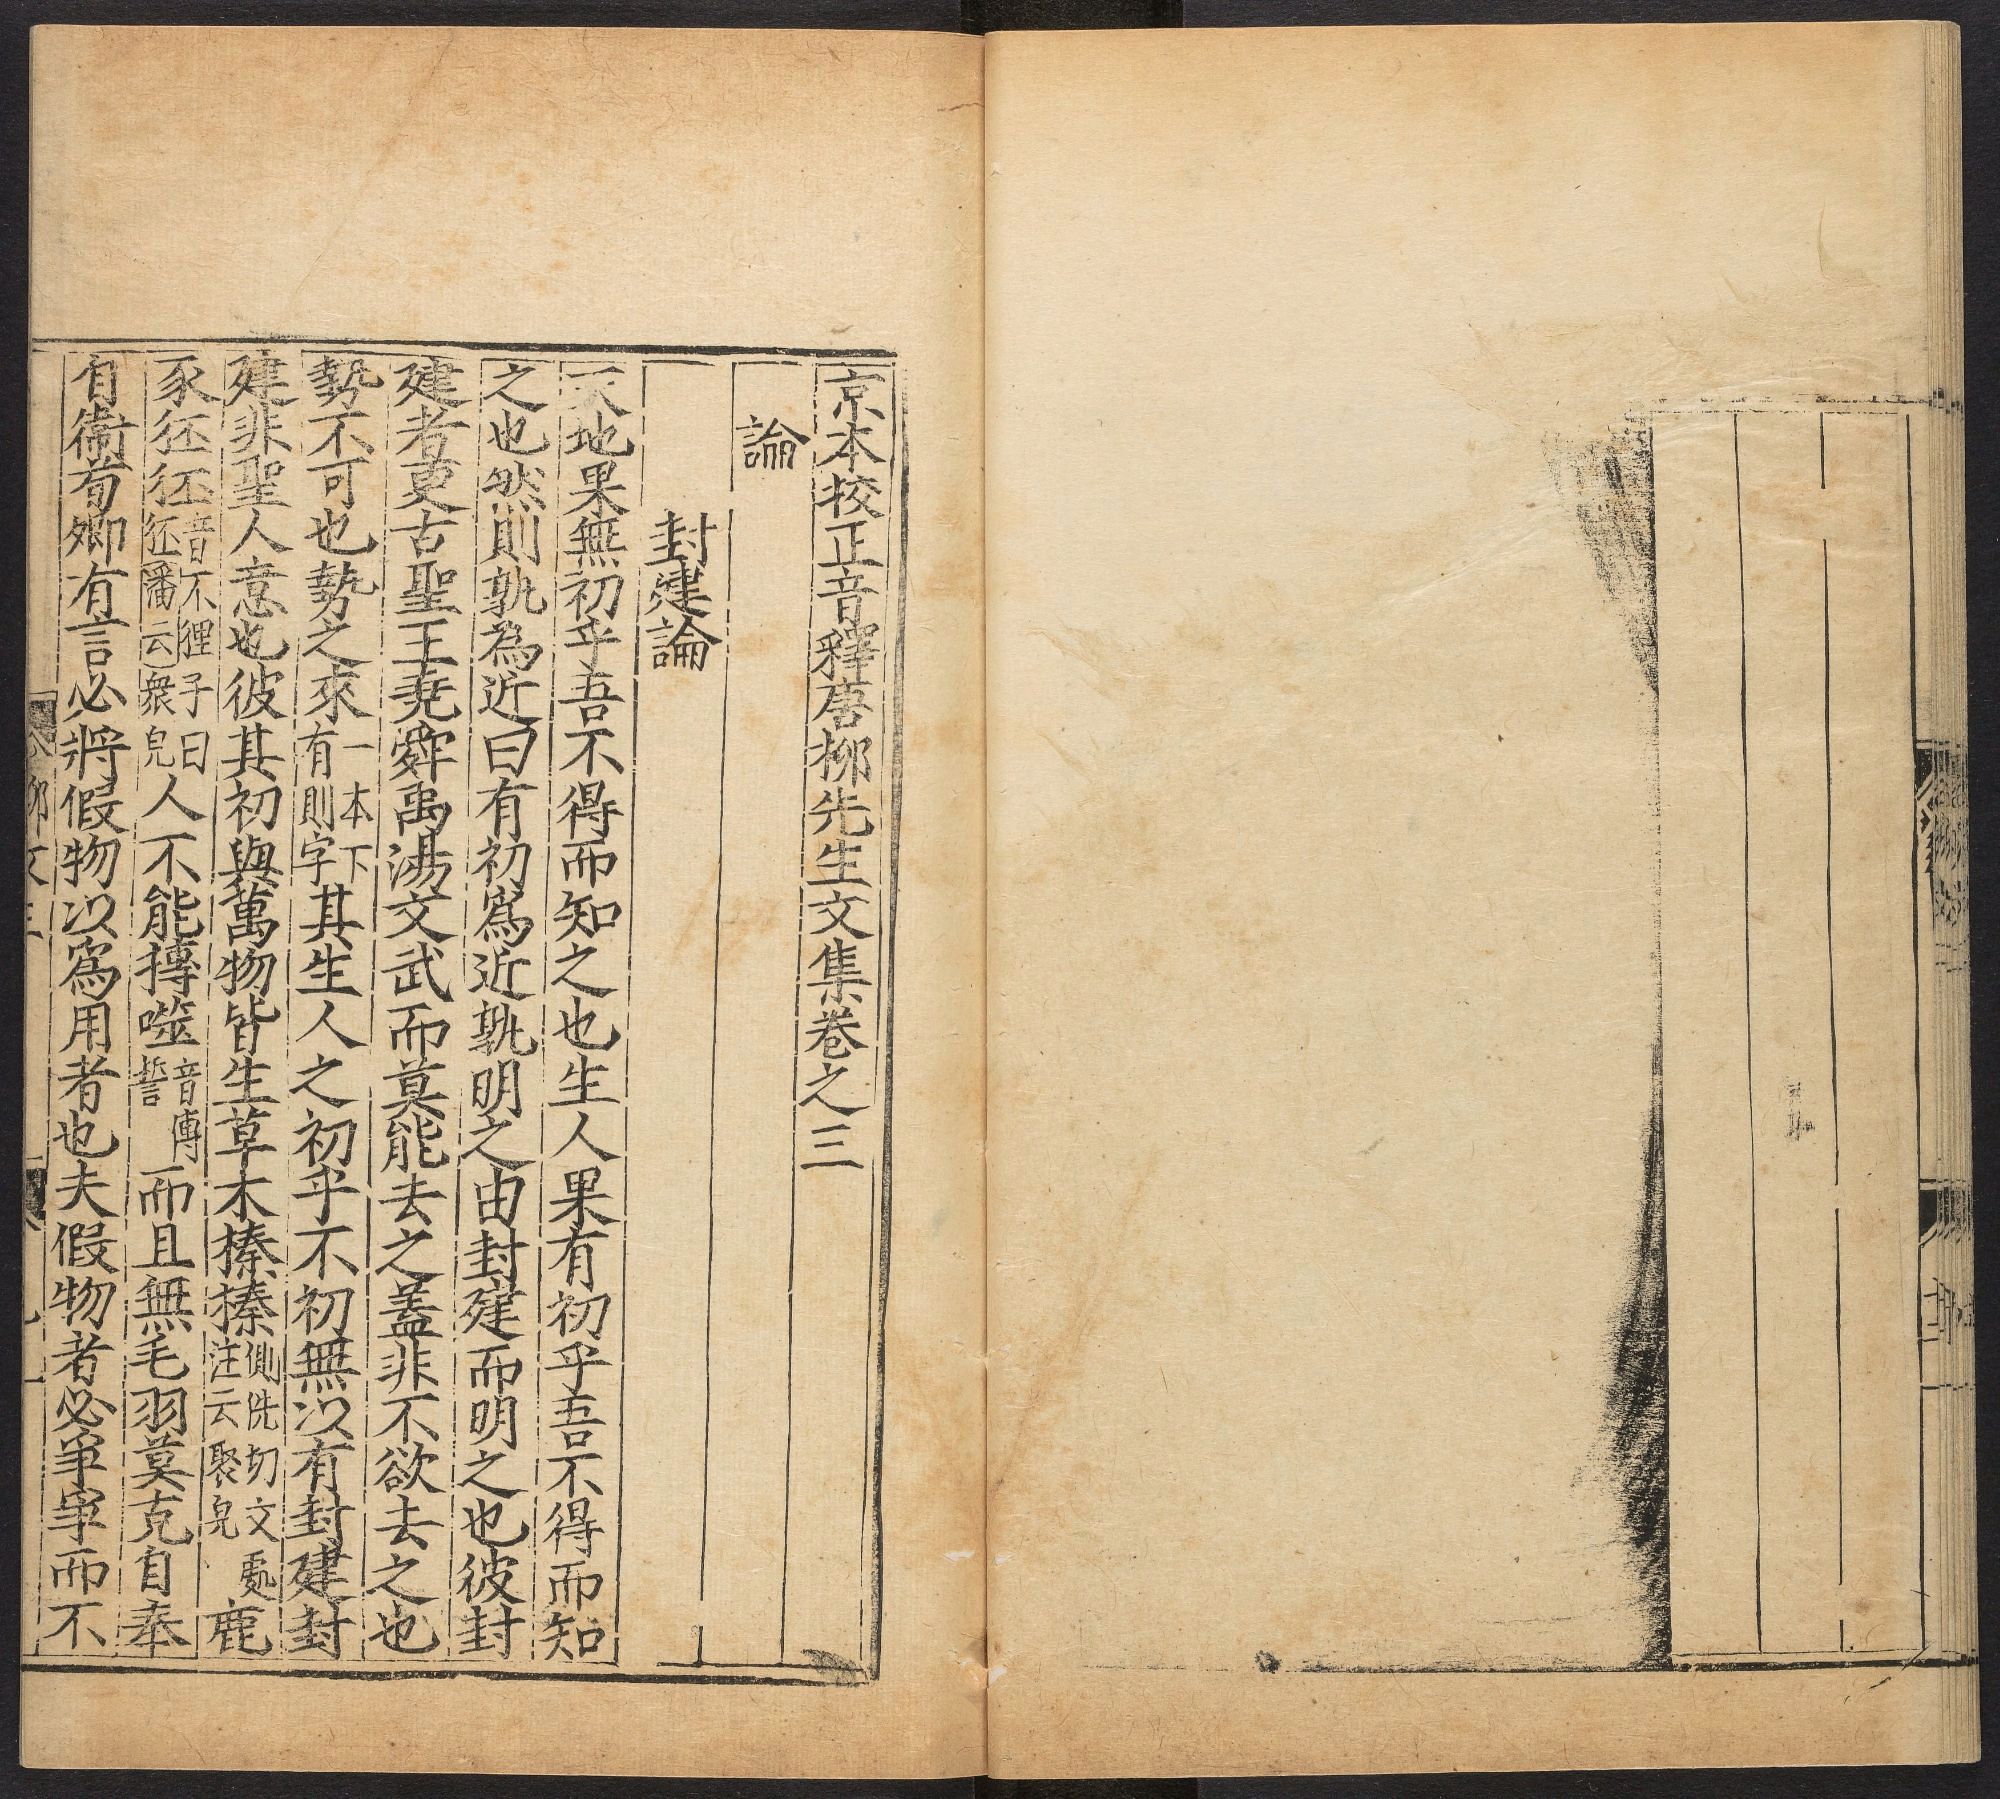 京本校正音釋唐柳先生文集卷之三
論
封建論
天地果無初乎吾不得而知之也生人果有初乎吾不得而知
之也然則孰為近曰有初爲近孰明之由封建而明之也彼封
建者更古聖王堯舜禹湯文武而莫能去之蓋非不欲去之也
勢不可也勢之來一本下有則字其生人之初乎不初無以有封建封
建非聖人意也彼其初與萬物皆生草木搸搸側侁切文注云聚皃鹿
豕狉狉音不狸子曰狉潘云衆皃人不能摶噬音傳誓而且無毛羽莫克自奉
自衞荀卿有言必將假物以爲用者也夫假物者必爭爭而不